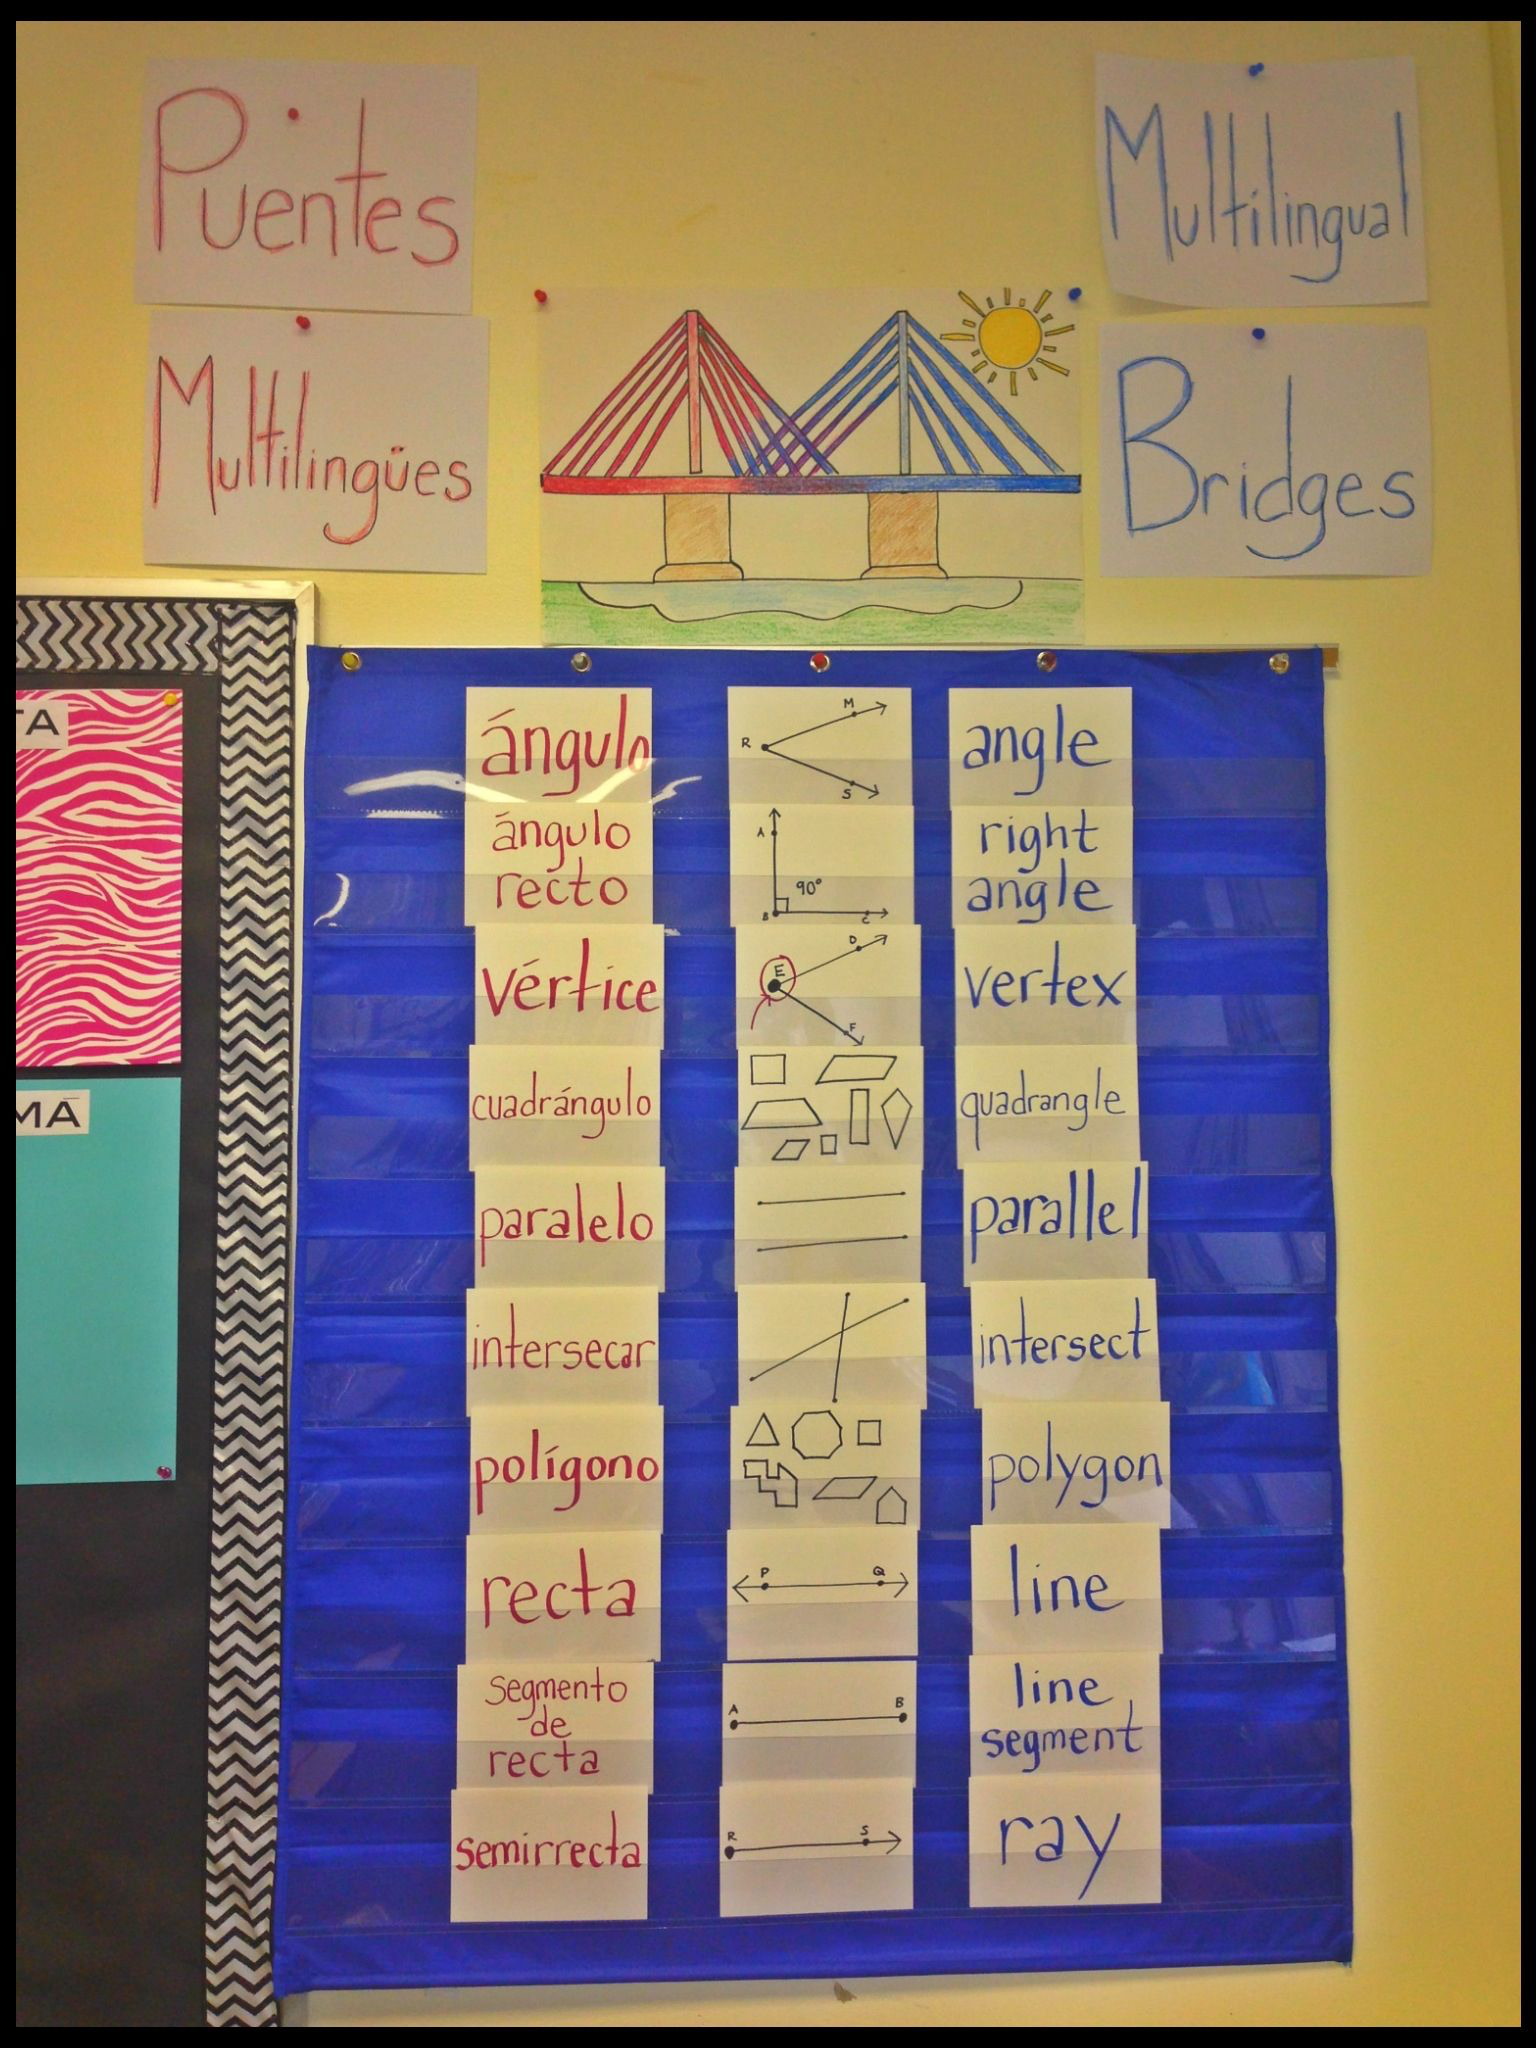 Puentes
Multilingües
Multilingual
Bridges
TA
MÁ
ángulo
M
R
S
angle
ángulo
recto
A
90°
B
C
right
angle
vértice
D
E
F
vertex
cuadrángulo
quadrangle
paralelo
parallel
intersecar
intersect
polígono
polygon
recta
P
Q
line
segmento
de
recta
A
B
line
segment
semirrecta
R
S
ray